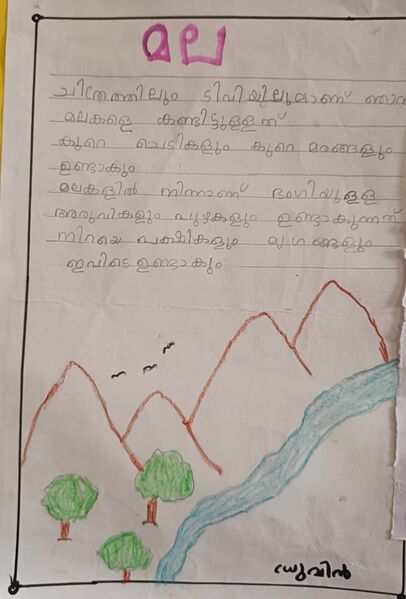 മല
ചിത്രത്തിലും ടിവിയിലുമാണ് ഞാൻ
മലകളെ കണ്ടിട്ടുള്ളത്
കുറെ ചെടികളും കുറെ മരങ്ങളും
ഉണ്ടാകും
മലകളിൽ നിന്നാണ് ഭംഗിയുള്ള
അരുവികളും പുഴകളും ഉണ്ടാകുന്നത്
നിറയെ പക്ഷികളും മൃഗങ്ങളും
ഇവിടെ ഉണ്ടാകും